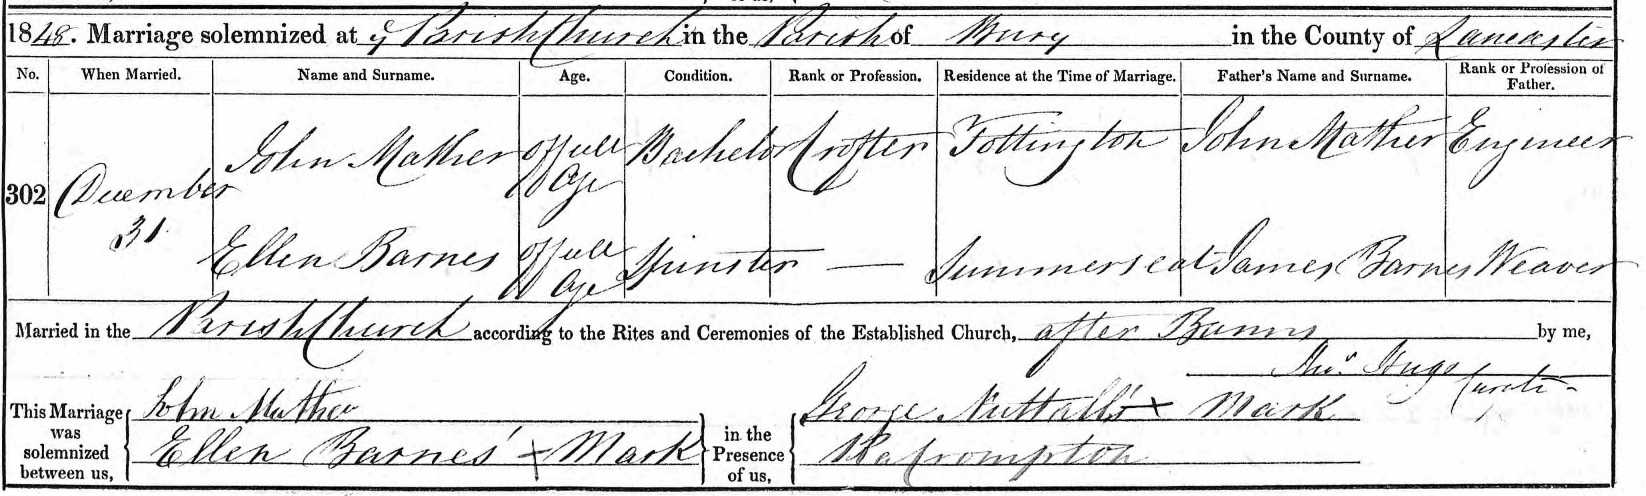 1848. Marriage solemnized at ye Parish Church in the Parish of Bury in the County of Lancaster
No. When Married. Name and Surname. Age. Condition. Rank or Profession. Residence at the Time of Marriage. Father's Name and Surname. Rank or Profession of Father.
302 December 31
John Mather of full Age Bachelor Crofter Tottington John Mather Engineer
Ellen Barnes of full Age Spinster — Summerseat James Barnes Weaver
Married in the Parish Church according to the Rites and Ceremonies of the Established Church, after Banns by me,
Curate
This Marriage was solemnized between us,
John Mather
Ellen Barnes' + Mark
in the Presence of us,
George Nuttall's + Mark
Crompton